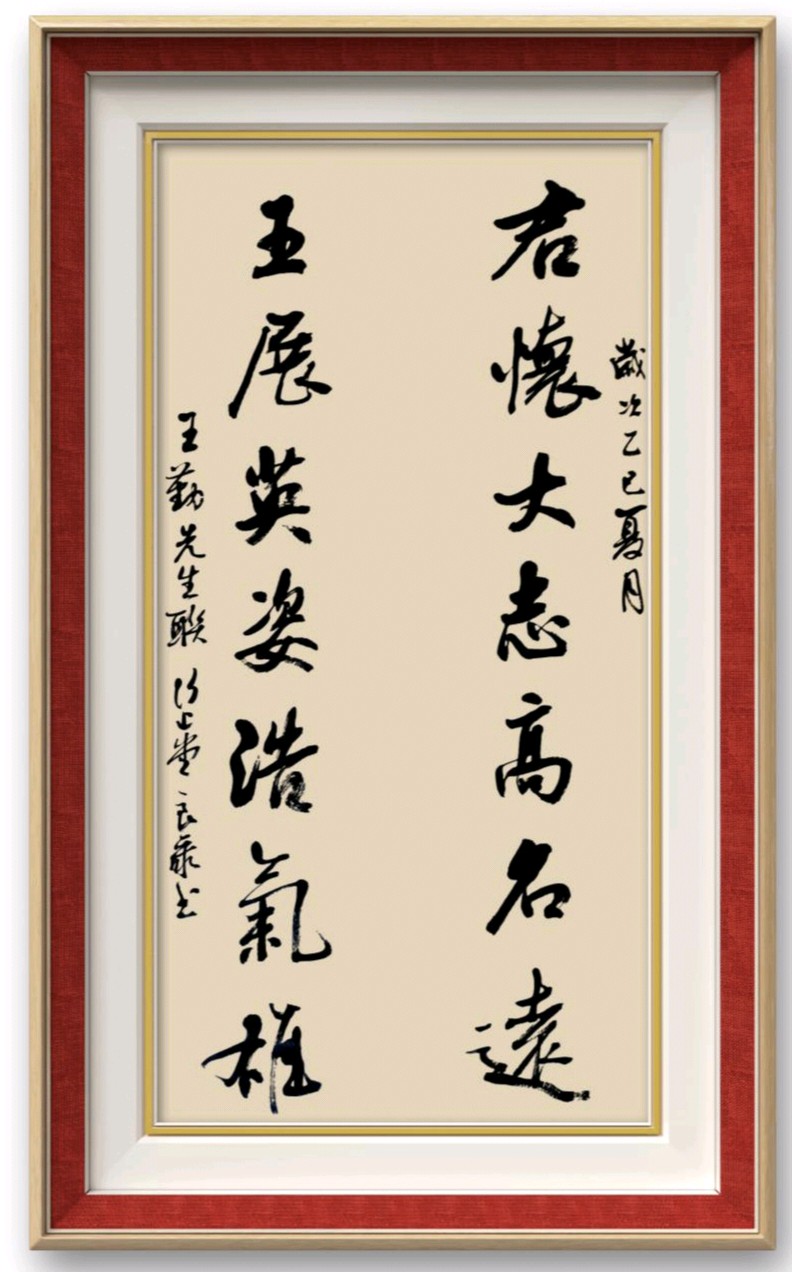 君懷大志高名遠
歲次乙巳夏月
王展英姿浩氣雄
王勤先生聯 良 书